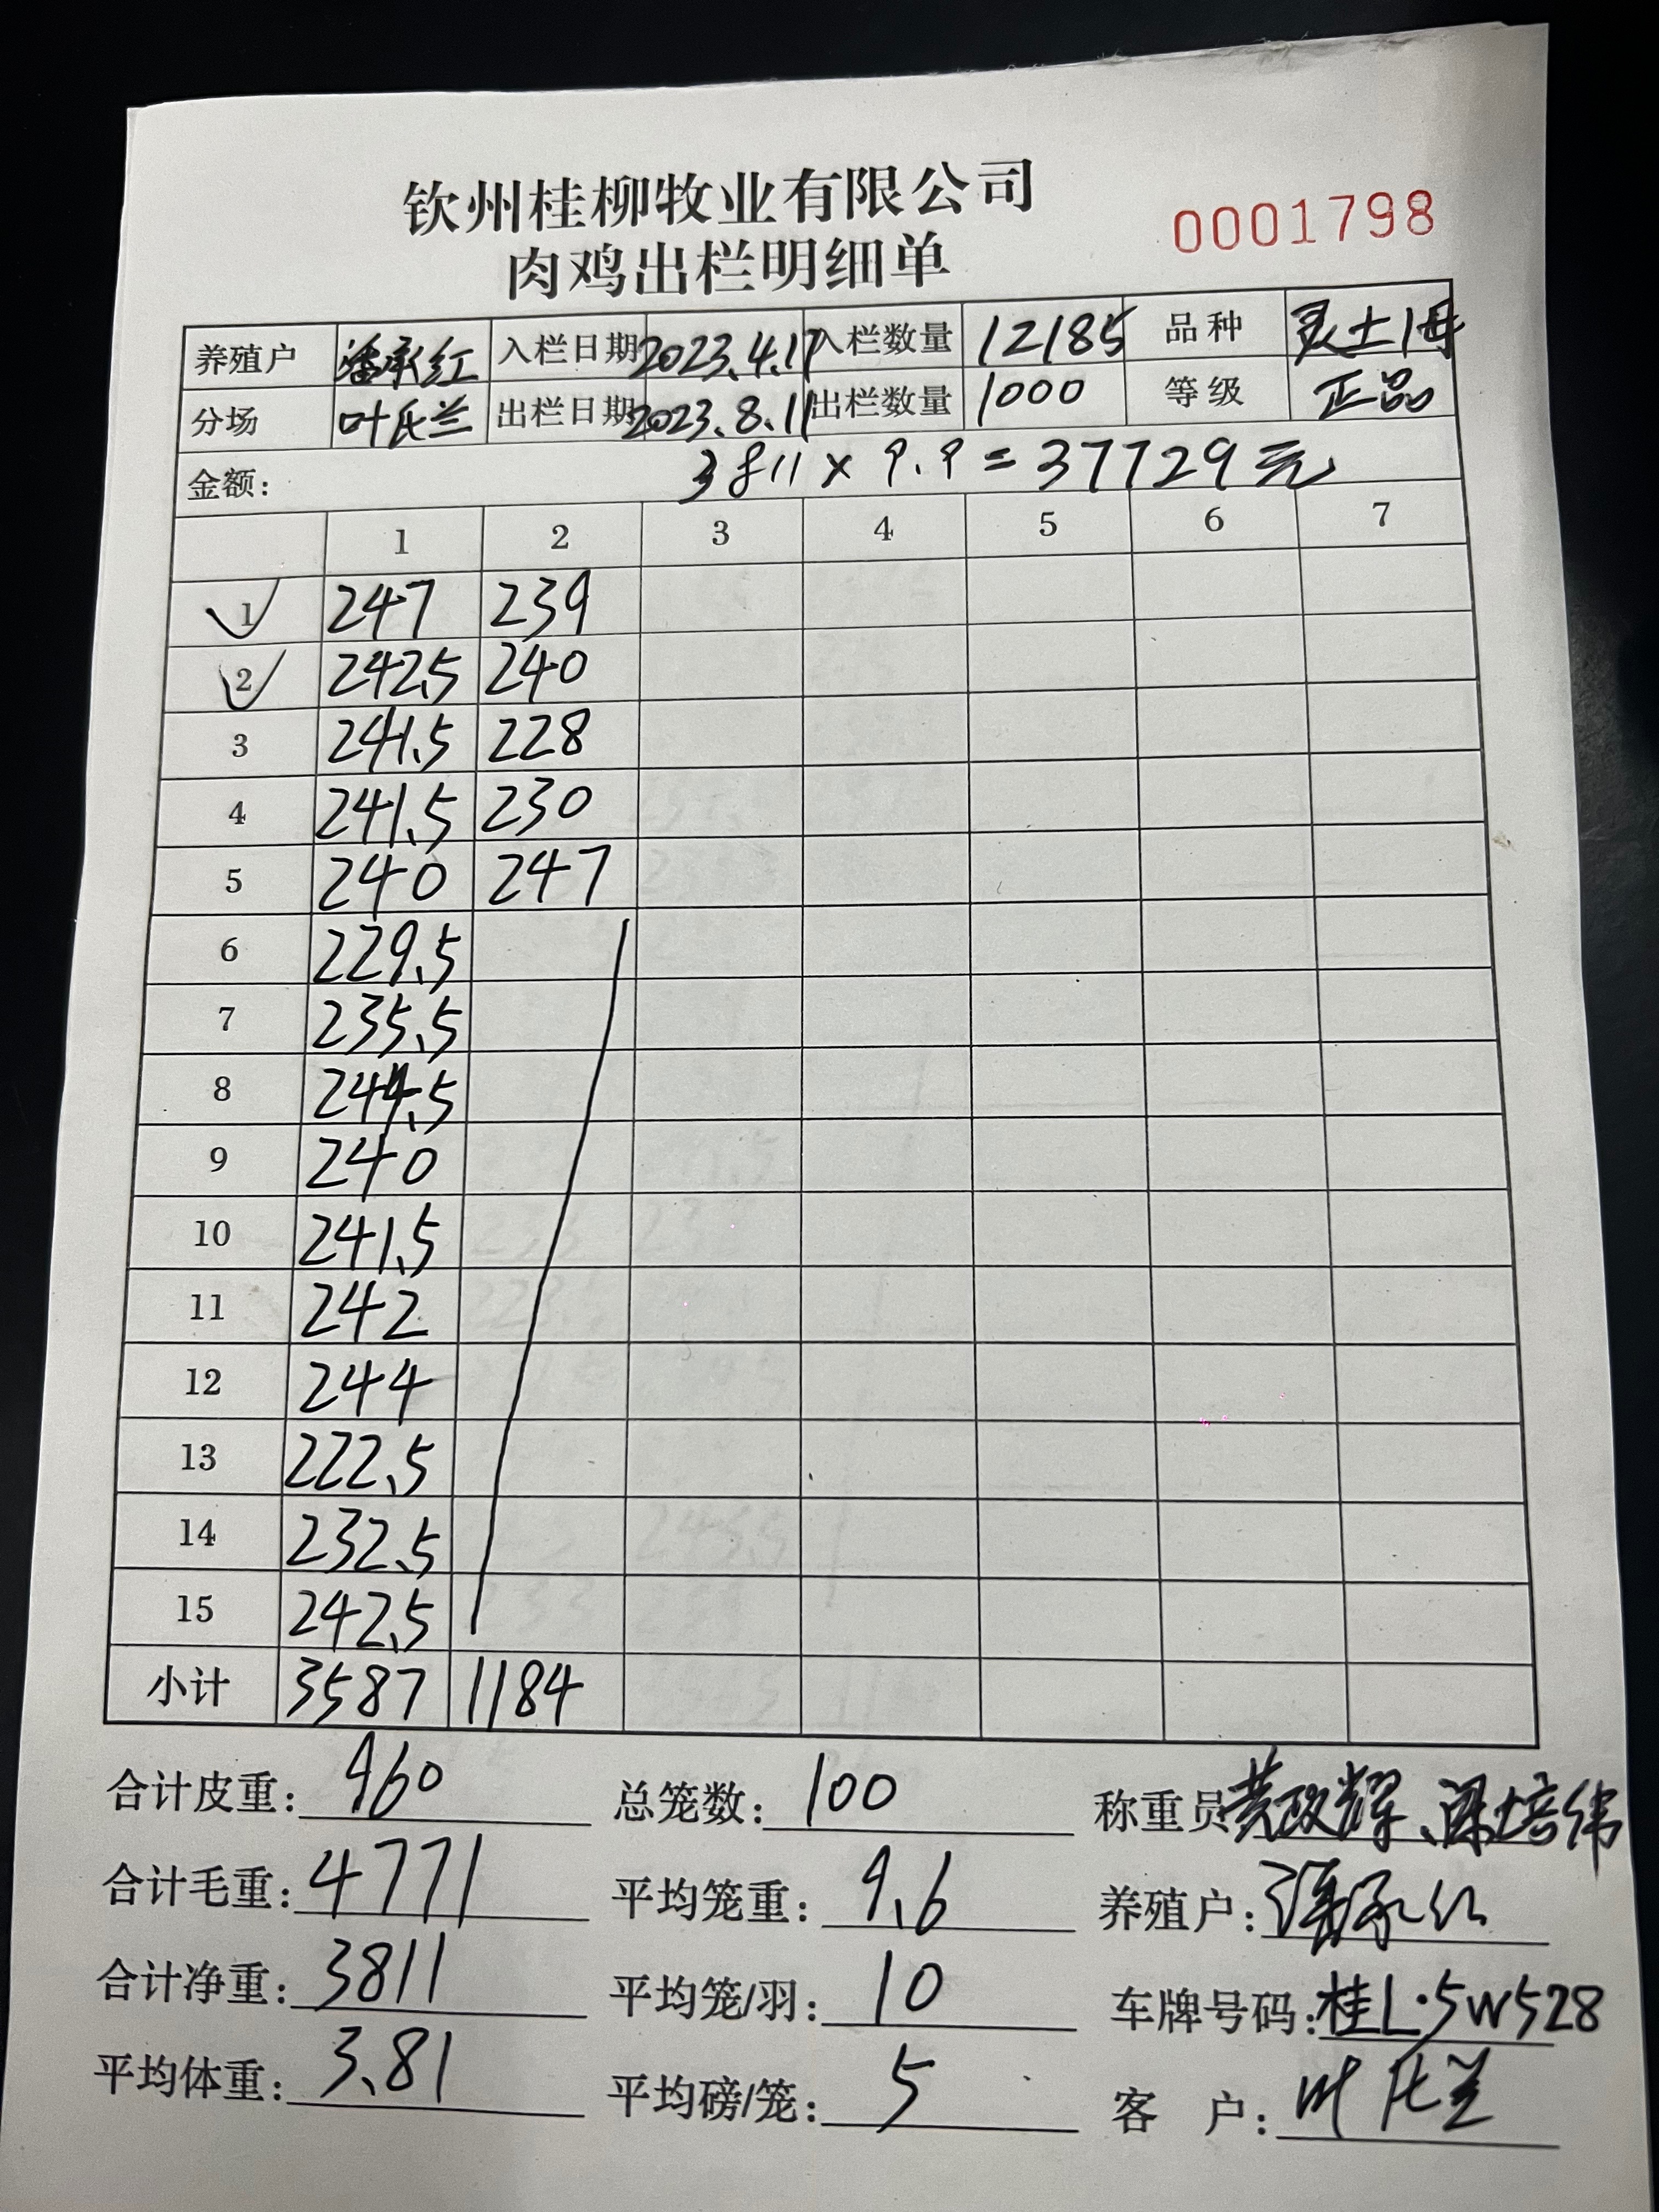 钦州桂柳牧业有限公司
肉鸡出栏明细单
0001798
养殖户 潘承红 入栏日期 2023.4.17 入栏数量 12185 品种 灵土1母
分场 叶氏兰 出栏日期 2023.8.11 出栏数量 1000 等级 正品
金额: 3811 x 9.9 = 37729元
1 2 3 4 5 6 7
1 247 239
2 242.5 240
3 241.5 228
4 241.5 230
5 240 247
6 229.5
7 235.5
8 244.5
9 240
10 241.5
11 242
12 244
13 222.5
14 232.5
15 242.5
小计 3587 1184
合计皮重: 960 总笼数: 100 称重员 黄政辉、梁培伟
合计毛重: 4771 平均笼重: 9.6 养殖户: 潘承红
合计净重: 3811 平均笼/羽: 10 车牌号码: 桂L·5W528
平均体重: 3.81 平均磅/笼: 5 客户: 叶氏兰